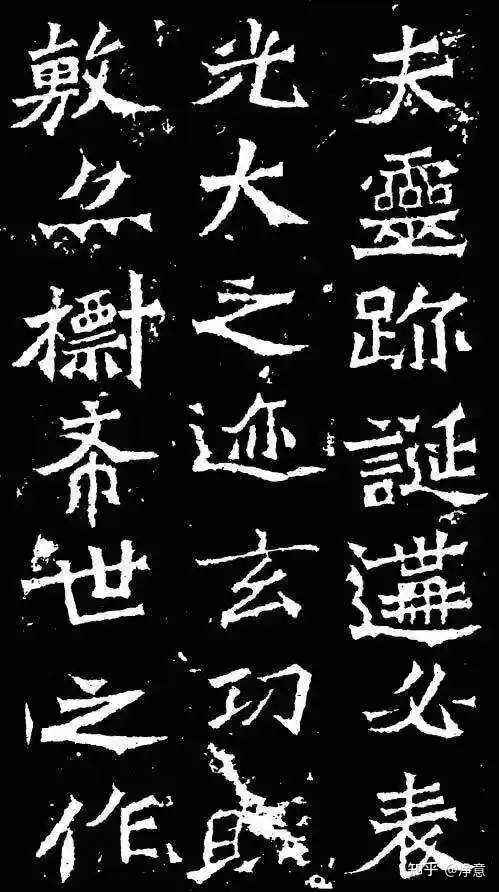 夫靈跡誕遘必表
光大之迹玄功既
敷亦標希世之作
知乎 @净意